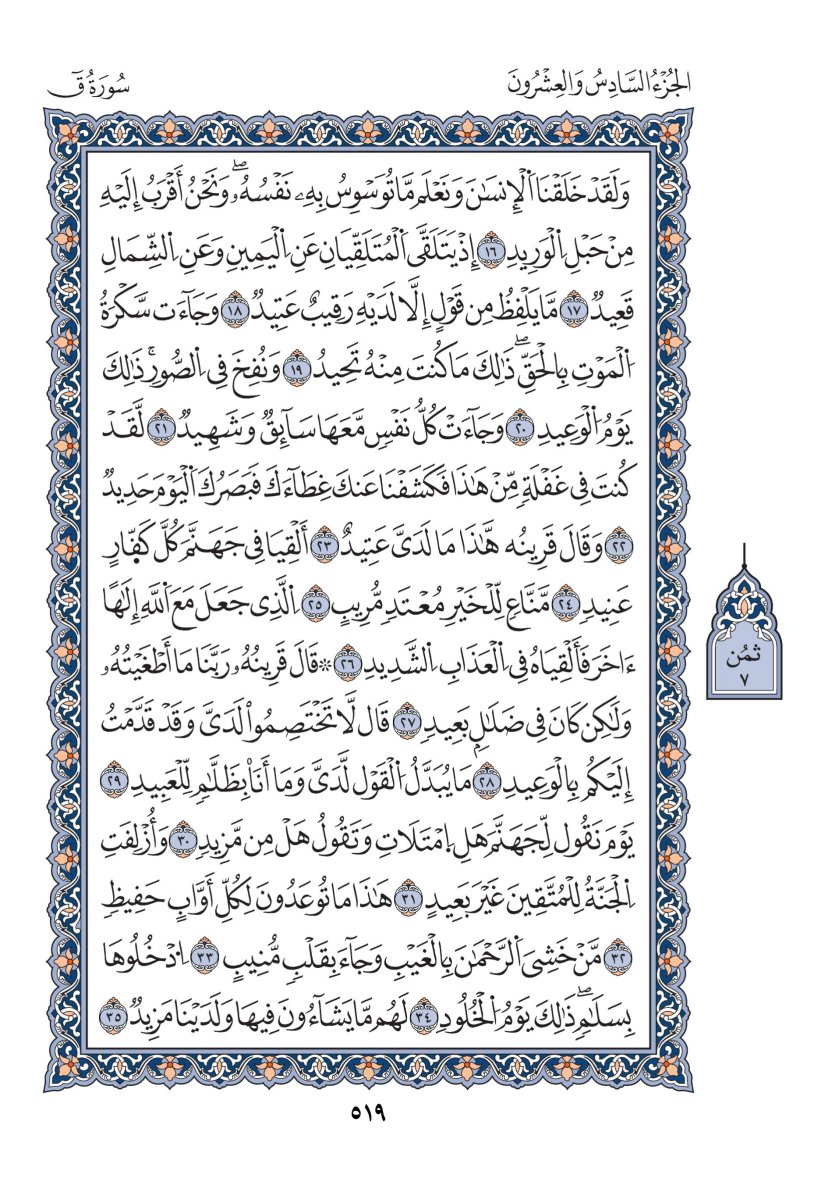 الجُزْءُ السَّادِسُ وَالعِشْرُونَ
سُورَةُ قٓ
وَلَقَدْ خَلَقْنَا اَ۬لْإِنسَٰنَ وَنَعْلَم مَّا تُوَسْوِسُ بِهِۦ نَفْسُهُۥۖ وَنَحْنُ أَقْرَبُ إِلَيْهِ
مِنْ حَبْلِ اِ۬لْوَرِيدِ ١٦ إِذْ يَتَلَقَّى اَ۬لْمُتَلَقِّيَانِ عَنِ اِ۬لْيَمِينِ وَعَنِ اِ۬لشِّمَالِ
قَعِيدٌ ١٧ مَّا يَلْفِظُ مِن قَوْلٍ إِلَّا لَدَيْهِ رَقِيبٌ عَتِيدٌ ١٨ وَجَآءَت سَّكْرَةُ
اُ۬لْمَوْتِ بِالْحَقِّۖ ذَٰلِكَ مَا كُنتَ مِنْهُ تَحِيدُ ١٩ وَنُفِخَ فِي اِ۬لصُّورِۚ ذَٰلِكَ
يَوْمُ اُ۬لْوَعِيدِ ٢٠ وَجَآءَتْ كُلُّ نَفْسٍ مَّعَهَا سَآئِقٌ وَشَهِيدٌ ٢١ لَّقَدْ
كُنتَ فِي غَفْلَةٍ مِّنْ هَٰذَا فَكَشَفْنَا عَنكَ غِطَآءَكَ فَبَصَرُكَ اَ۬لْيَوْمَ حَدِيدٌ
٢٢ وَقَالَ قَرِينُه هَّٰذَا مَا لَدَيَّ عَتِيدٌ ٢٣ أَلْقِيَا فِي جَهَنَّمَ كُلَّ كَفّ۪ارٍ
عَنِيدٍ ٢٤ مَّنَّاعٍ لِّلْخَيْرِ مُعْتَدٍ مُّرِيبٍ ٢٥ اِ۬لَّذِي جَعَلَ مَعَ اَ۬للَّهِ إِلَٰهًا
ءَاخَرَ فَأَلْقِيَاهُ فِي اِ۬لْعَذَابِ اِ۬لشَّدِيدِ ٢٦ ۞قَالَ قَرِينُهُۥ رَبَّنَا مَا أَطْغَيْتُهُۥ
وَلَٰكِن كَانَ فِي ضَلَٰلٍۭ بَعِيدٍ ٢٧ قَال لَّا تَخْتَصِمُواْ لَدَيَّ وَقَدْ قَدَّمْتُ
إِلَيْكُم بِالْوَعِيدِ ٢٨ مَا يُبَدَّلُ اُ۬لْقَوْل لَّدَيَّ وَمَا أَنَا۠ بِظَلَّٰمٍ لِّلْعَبِيدِ ٢٩
يَوْمَ نَقُول لِّجَهَنَّمَ هَلِ اِ۪مْتَلَاتِ وَتَقُولُ هَلْ مِن مَّزِيدٍ ٣٠ وَأُزْلِفَتِ
اِ۬لْجَنَّةُ لِلْمُتَّقِينَ غَيْرَ بَعِيدٍ ٣١ هَٰذَا مَا تُوعَدُونَ لِكُلِّ أَوَّابٍ حَفِيظٍ
٣٢ مَّنْ خَشِيَ اَ۬لرَّحْمَٰنَ بِالْغَيْبِ وَجَآءَ بِقَلْبٍ مُّنِيبٍ ٣٣ اِ۟دْخُلُوهَا
بِسَلَٰمٍۖ ذَٰلِكَ يَوْمُ اُ۬لْخُلُودِ ٣٤ لَهُم مَّا يَشَآءُونَ فِيهَا وَلَدَيْنَا مَزِيدٌ ٣٥
ثُمُن
٧
٥١٩